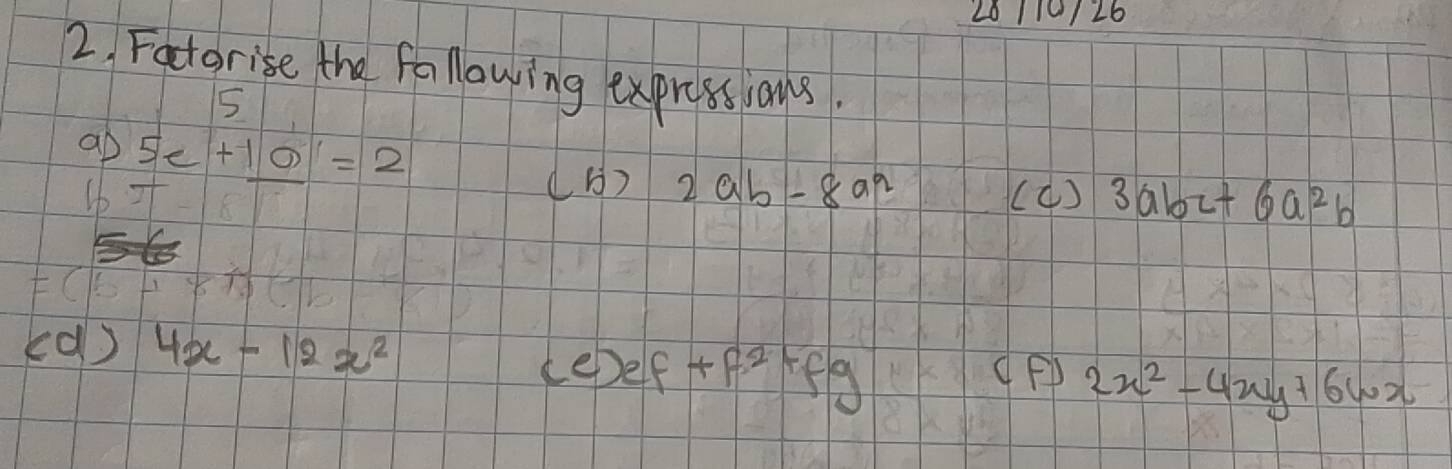 28/10/26
2. Factorise the following expressions.
5
a) 5e + 10 = 2 (b) 2ab - 8an (c) 3abc + 6a²b
(d) 4x - 12x² (e) ef + f² + fg (f) 2x² - 4xy + 6wx